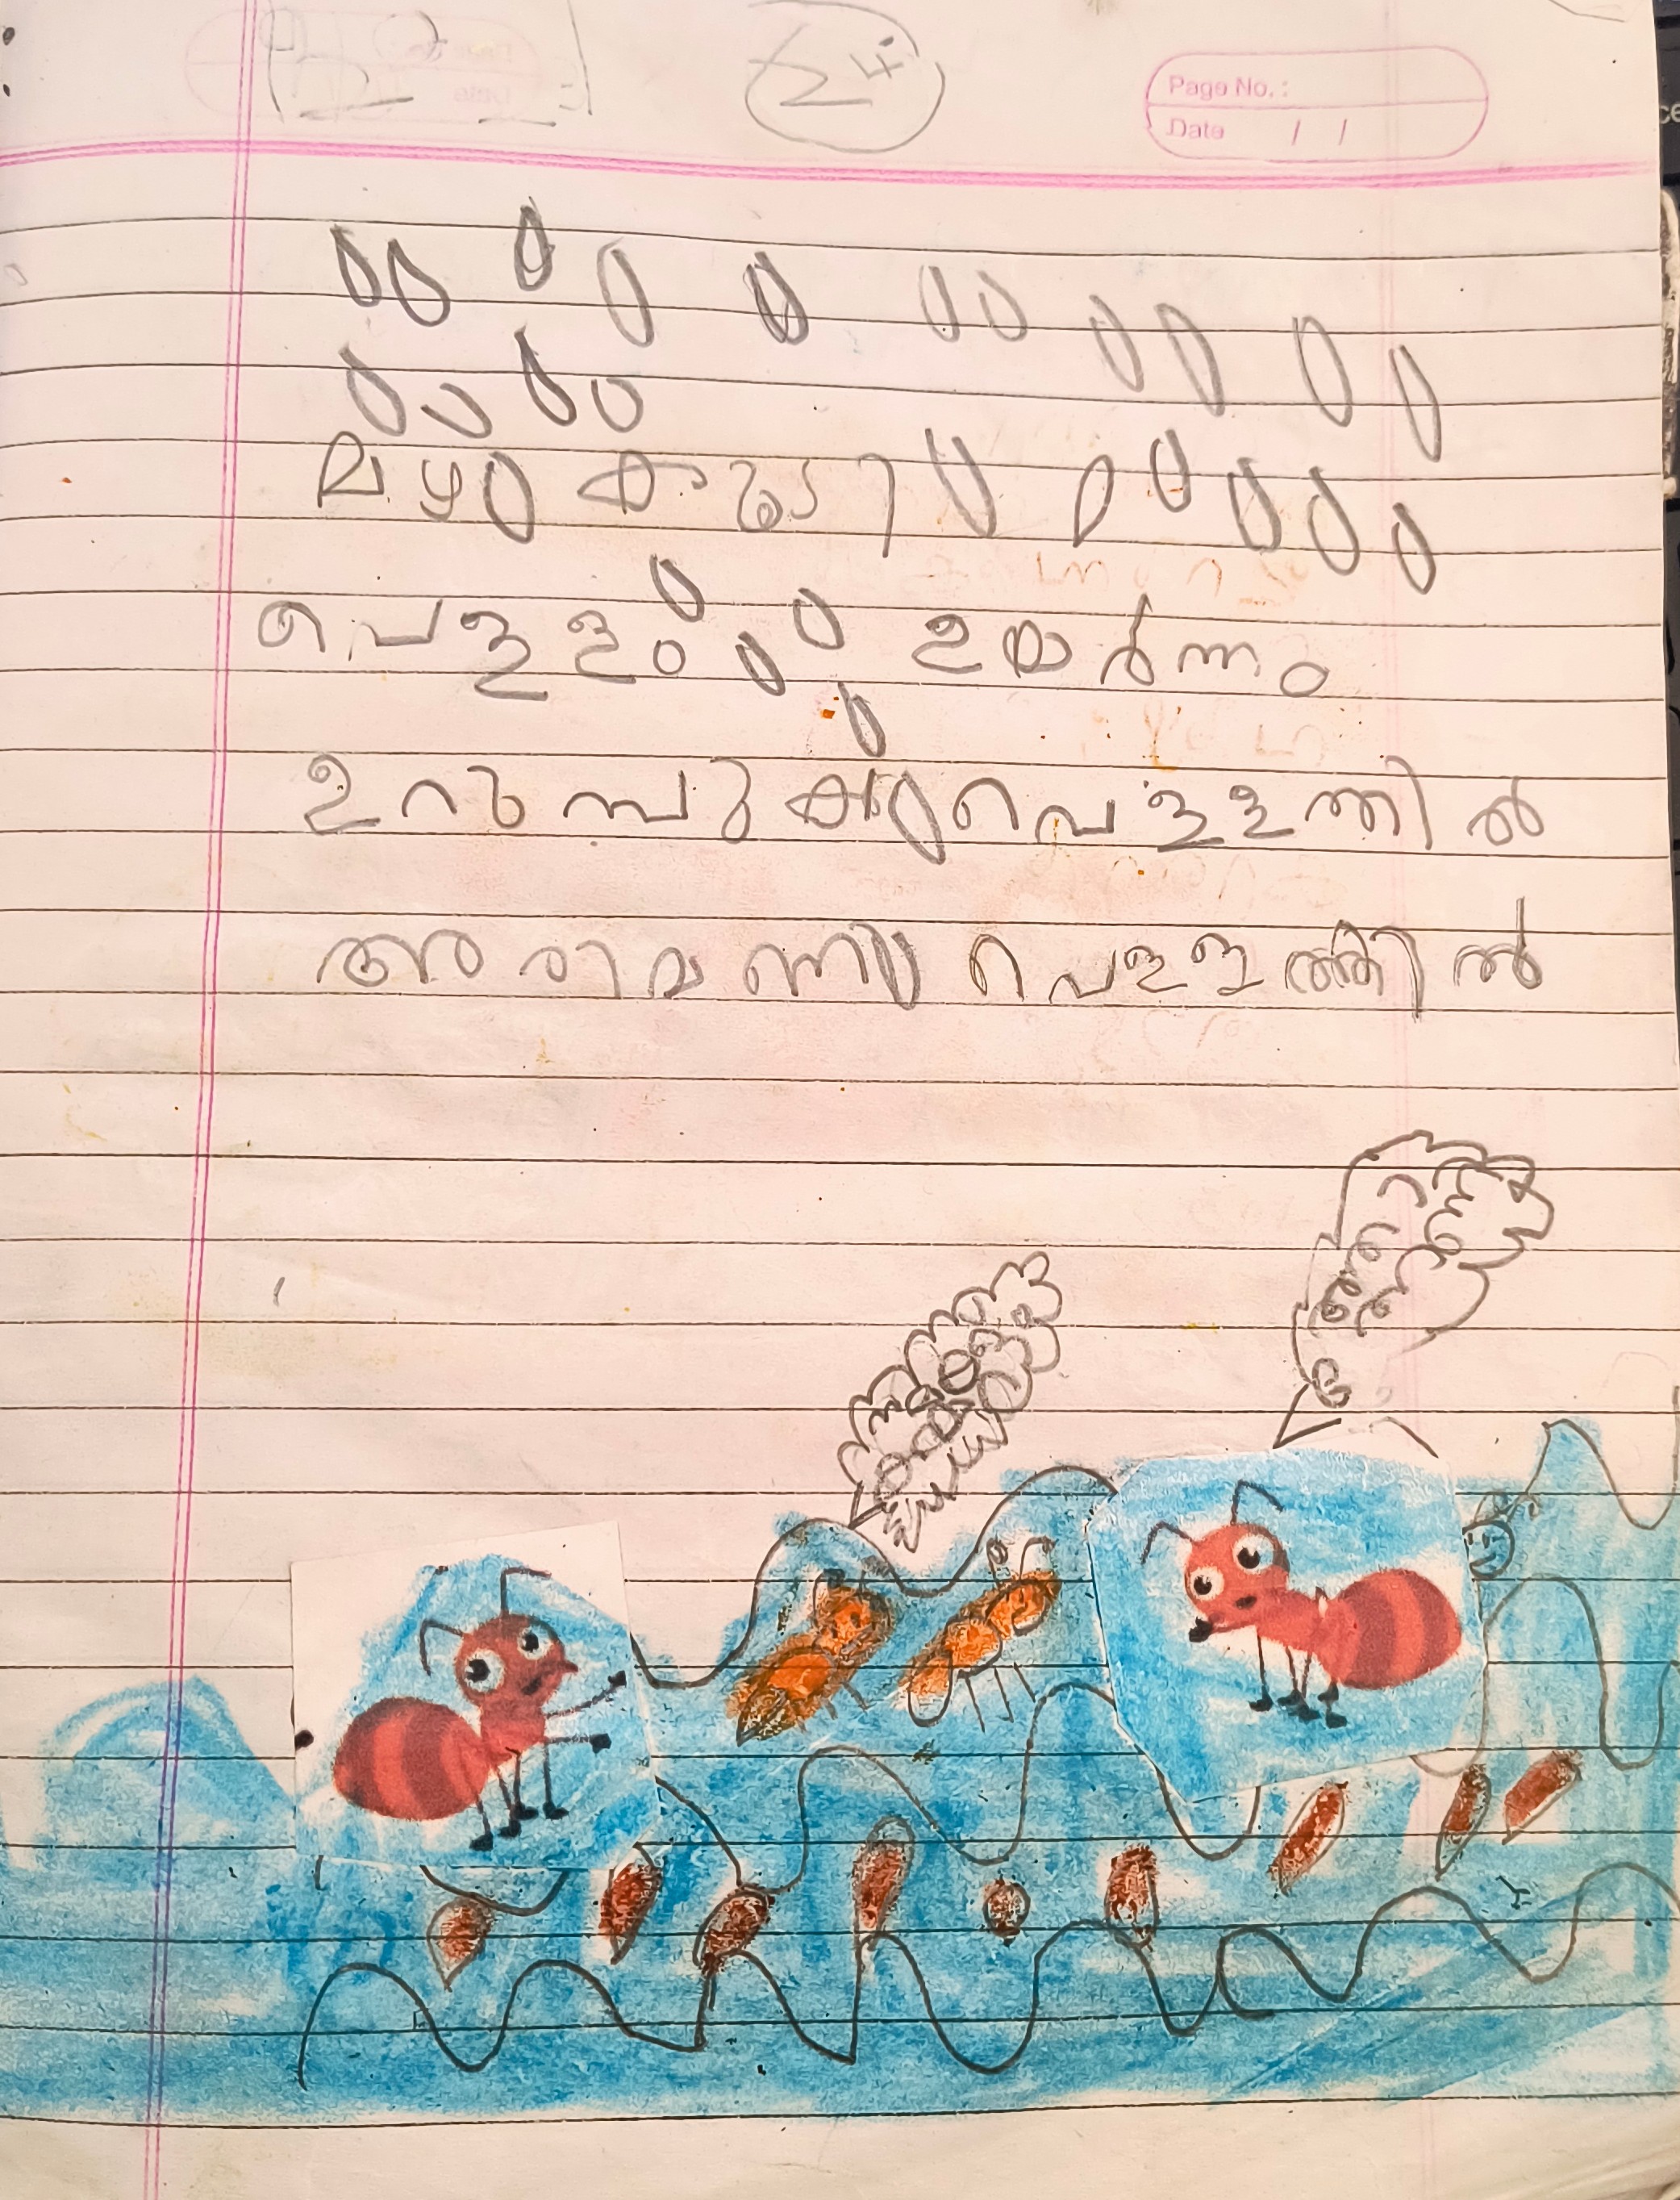 24
Page No. :
Date / /
മഴ കൂടി
വെള്ളം ഉയർന്നു
ഉറുമ്പുകൾ വെള്ളത്തിൽ
അരിമണി വെള്ളത്തിൽ